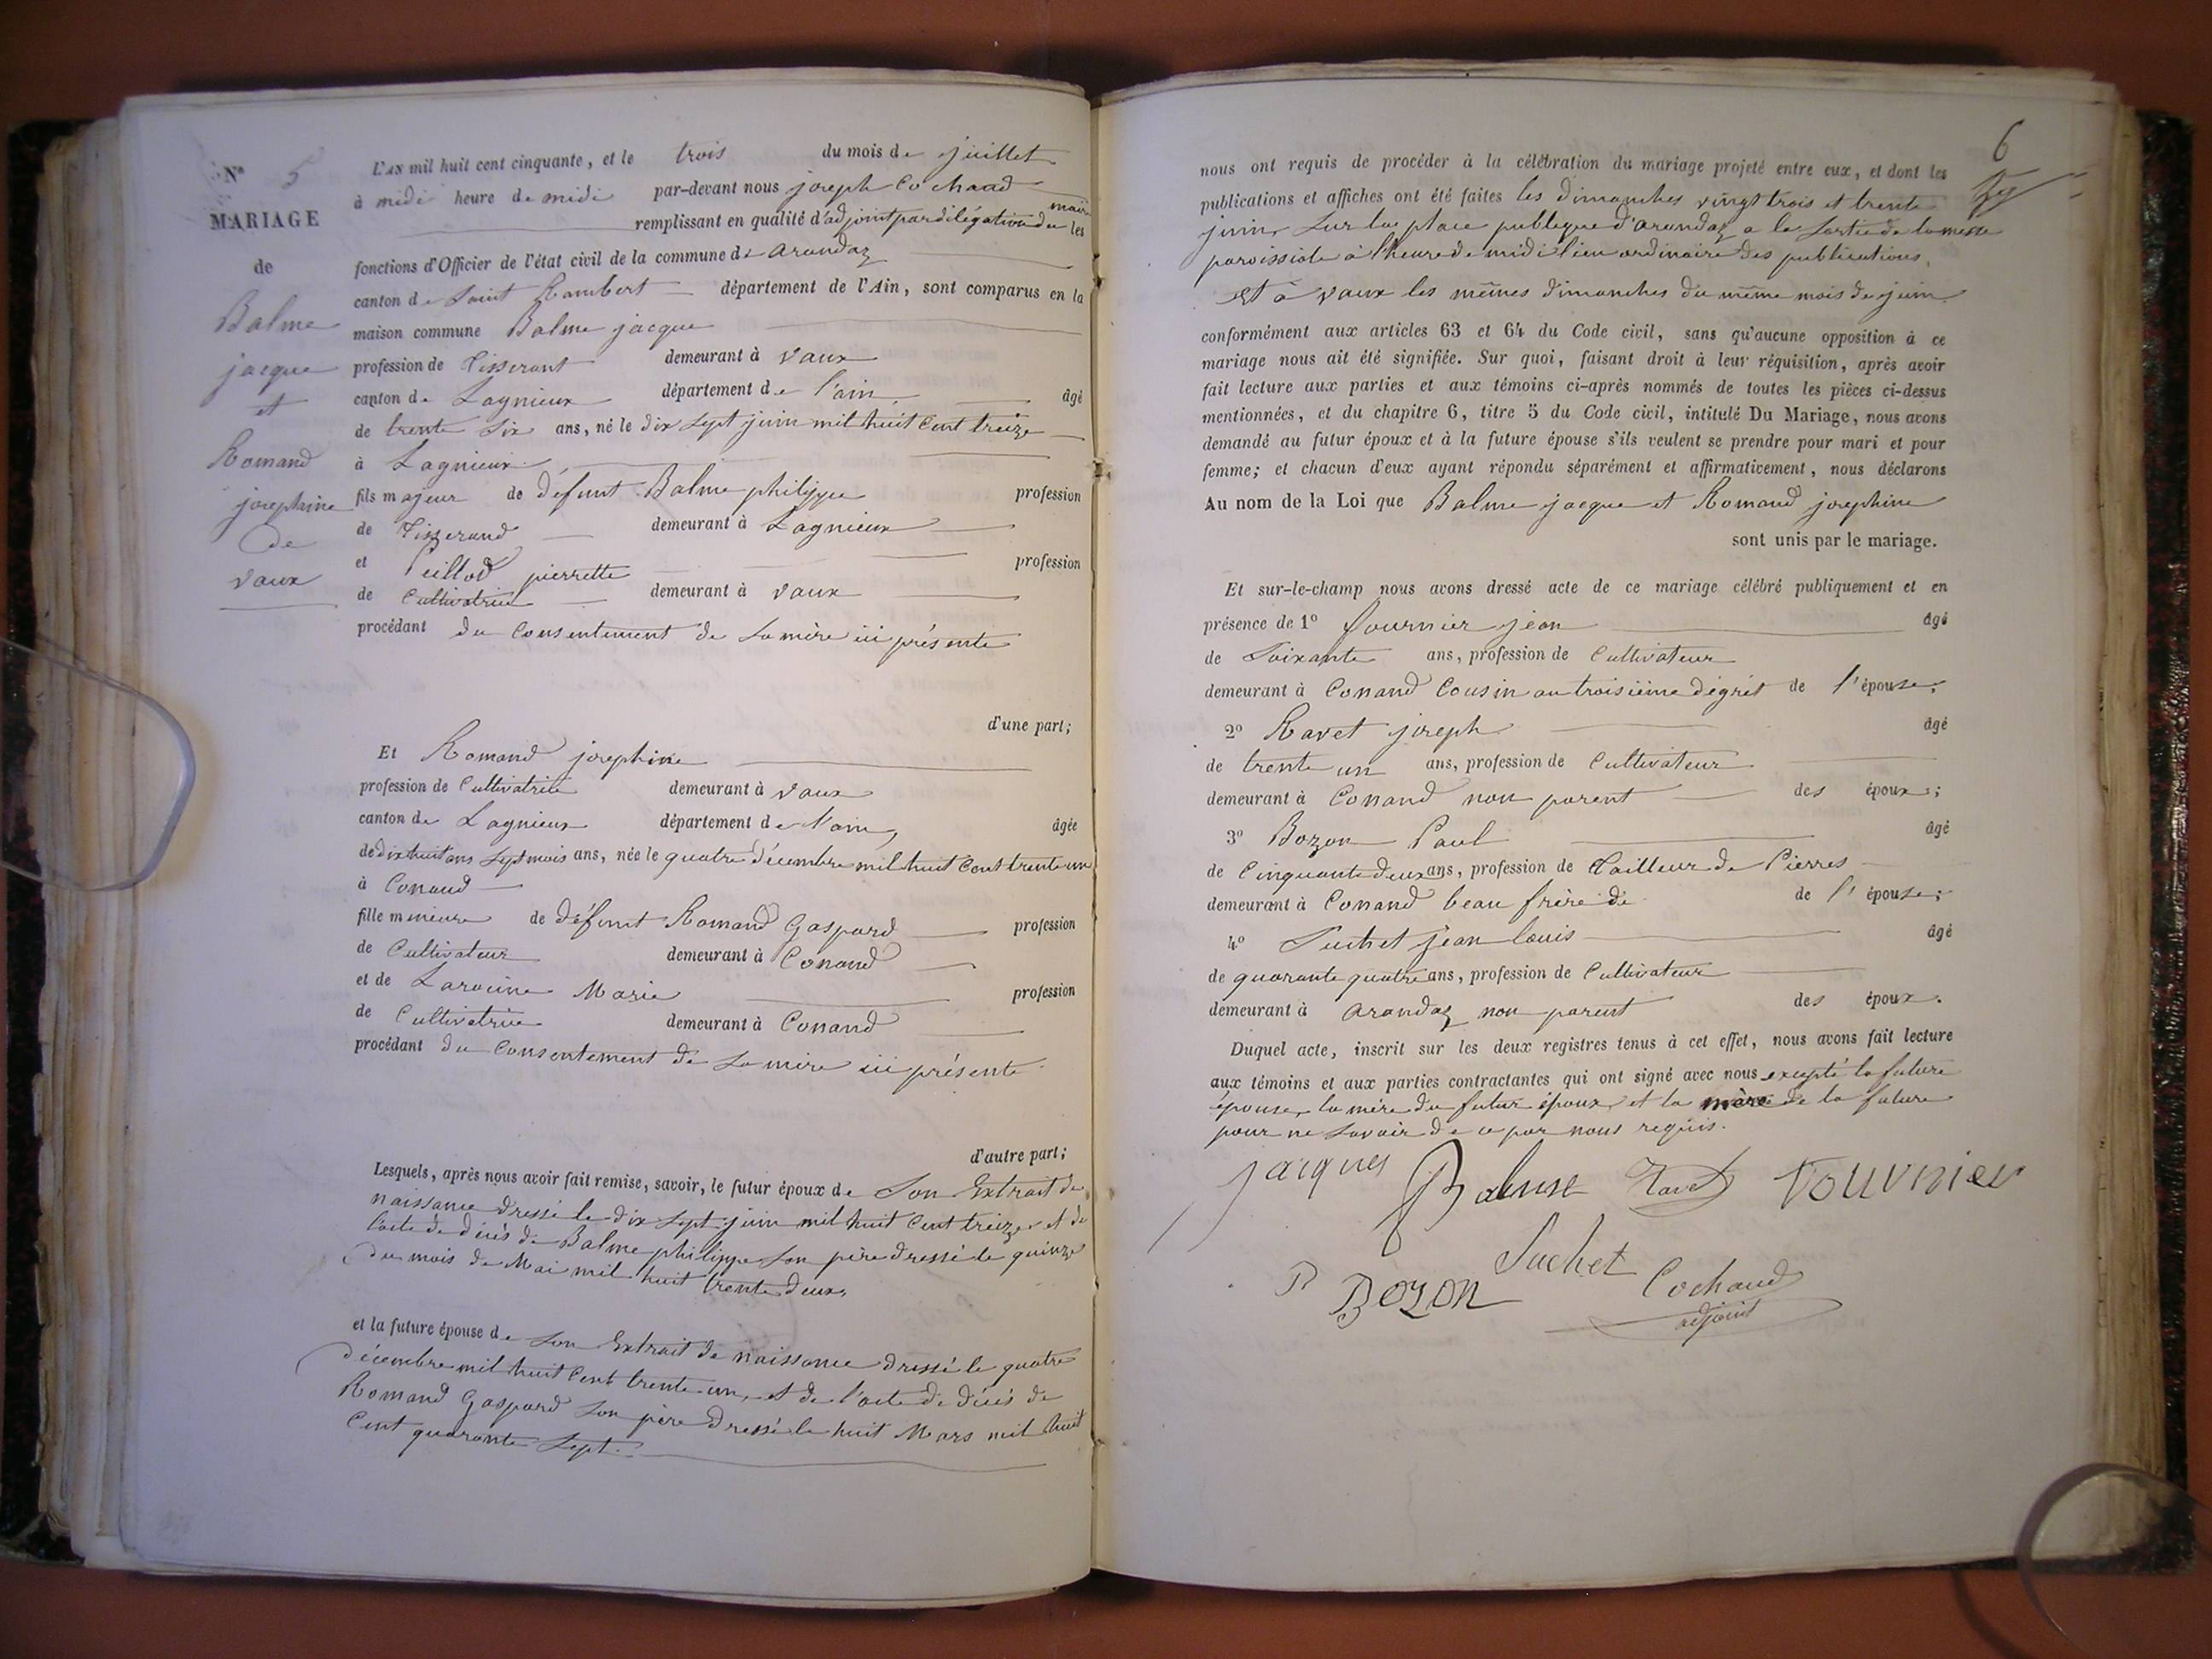 N° 5
MARIAGE
de
Balme
jacque
et
Romand
josephine
de
vaux
L'AN mil huit cent cinquante, et le trois du mois de juillet
à midi heure de midi par-devant nous joseph Cochaud
remplissant en qualité d'adjoint par délégation du maire les
fonctions d'Officier de l'état civil de la commune de arandaz
canton de Saint Rambert département de l'Ain, sont comparus en la
maison commune Balme jacque
profession de Tisserant demeurant à vaux
canton de Lagnieux département de l'ain âgé
de trente six ans, né le dix sept juin mil huit Cent treize
à Lagnieux
fils majeur de défunt Balme philippe profession
de Tisserand demeurant à Lagnieux
et Peillod pierrette profession
de Cultivatrice demeurant à vaux
procédant du Consentement de sa mère ici présente
d'une part;
Et Romand josephine
profession de Cultivatrice demeurant à vaux
canton de Lagnieux département de l'ain, âgée
de dix huit ans sept mois ans, née le quatre décembre mil huit Cent trente un
à Conand
fille mineure de défunt Romand Gaspard profession
de Cultivateur demeurant à Conand
et de Laracine Marie profession
de Cultivatrice demeurant à Conand
procédant du Consentement de sa mère ici présente
d'autre part;
Lesquels, après nous avoir fait remise, savoir, le futur époux de Son Extrait de
naissance dressé le dix sept juin mil huit Cent treize et de
l'acte de décès de Balme philippe son père dressé le quinze
du mois de Mai mil huit trente deux,
et la future épouse de son Extrait de naissance dressé le quatre
décembre mil huit Cent trente un, et de l'acte de décès de
Romand Gaspard son père dressé le huit Mars mil huit
Cent quarante sept.
6
nous ont requis de procéder à la célébration du mariage projeté entre eux, et dont les
publications et affiches ont été faites les dimanches vingt trois et trente
juin, sur la place publique d'arandaz a la sortie de la messe
paroissiale à l'heure de midi lieu ordinaire des publications,
et à vaux les mêmes dimanches du même mois de juin
conformément aux articles 63 et 64 du Code civil, sans qu'aucune opposition à ce
mariage nous ait été signifiée. Sur quoi, faisant droit à leur réquisition, après avoir
fait lecture aux parties et aux témoins ci-après nommés de toutes les pièces ci-dessus
mentionnées, et du chapitre 6, titre 5 du Code civil, intitulé Du Mariage, nous avons
demandé au futur époux et à la future épouse s'ils veulent se prendre pour mari et pour
femme; et chacun d'eux ayant répondu séparément et affirmativement, nous déclarons
Au nom de la Loi que Balme jacque et Romand josephine
sont unis par le mariage.
Et sur-le-champ nous avons dressé acte de ce mariage célébré publiquement et en
présence de 1° fournier jean âgé
de Soixante ans, profession de Cultivateur
demeurant à Conand Cousin au troisième dégrés de l'épouse;
2° Ravet joseph âgé
de trente un ans, profession de Cultivateur
demeurant à Conand non parent des époux;
3° Bozon Paul âgé
de Cinquante deux ans, profession de Tailleur de Pierres
demeurant à Conand beau frère de de l'épouse;
4° Suchet jean louis âgé
de quarante quatre ans, profession de Cultivateur
demeurant à arandaz non parent des époux.
Duquel acte, inscrit sur les deux registres tenus à cet effet, nous avons fait lecture
aux témoins et aux parties contractantes qui ont signé avec nous excepté la future
épouse, la mère du futur époux, et la mère de la future
pour ne savoir de ce par nous requis.
jacques Balme Ravet Fournier
P BOZON Suchet Cochaud
adjoint